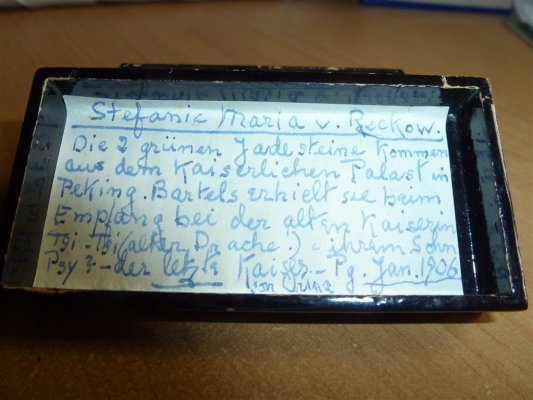 Stefanie Maria v. Reckow.
Die 2 grünen Jadesteine kommen
aus dem Kaiserlichen Palast in
Peking. Bartels erhielt sie beim
Empfang bei der alten Kaiserin
Tsi-Tsi (alter Drache!) u. ihrem Sohn
Psy? - der letzte Kaiser - Pg. Jan. 1906
in China